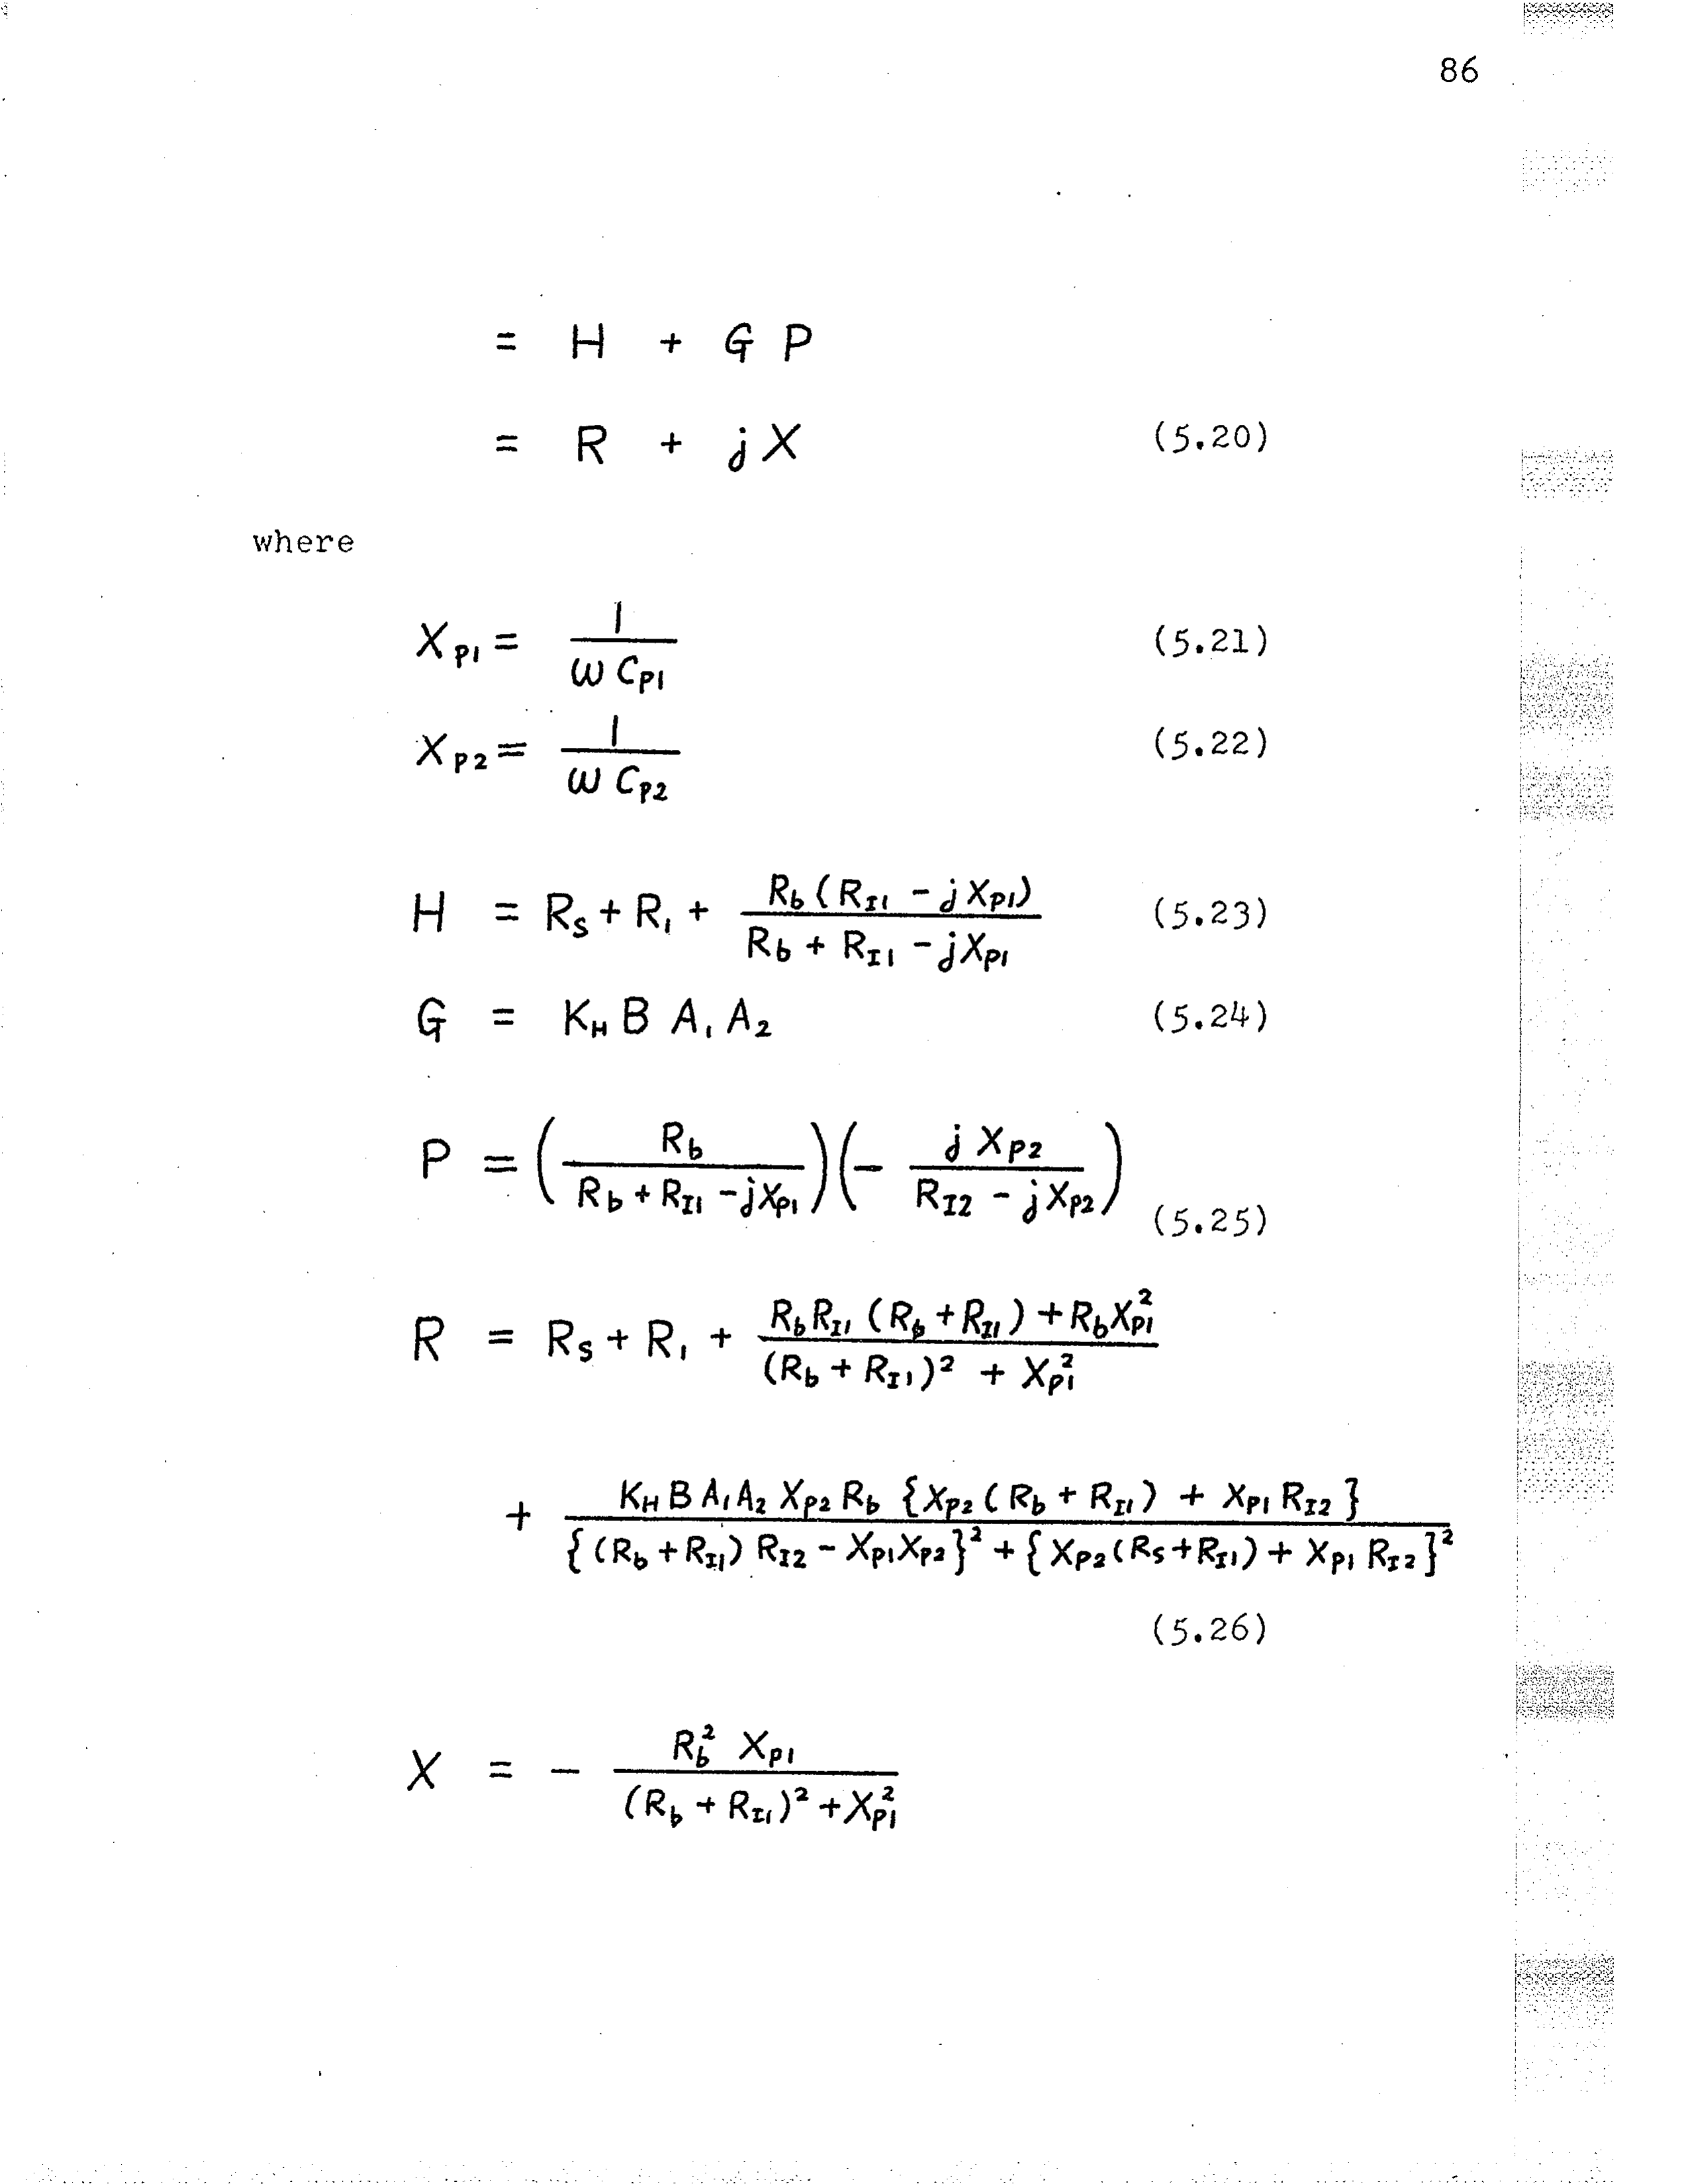 86
= H + G P
= R + jX (5.20)
where
X_{P1} = \frac{1}{ω C_{P1}} (5.21)
X_{P2} = \frac{1}{ω C_{P2}} (5.22)
H = R_S + R_1 + \frac{R_b (R_{I1} - j X_{P1})}{R_b + R_{I1} - j X_{P1}} (5.23)
G = K_H B A_1 A_2 (5.24)
P = \left( \frac{R_b}{R_b + R_{I1} - j X_{P1}} \right) \left( - \frac{j X_{P2}}{R_{I2} - j X_{P2}} \right) (5.25)
R = R_S + R_1 + \frac{R_b R_{I1} (R_b + R_{I1}) + R_b X_{P1}^2}{(R_b + R_{I1})^2 + X_{P1}^2}
+ \frac{K_H B A_1 A_2 X_{P2} R_b \{X_{P2} (R_b + R_{I1}) + X_{P1} R_{I2}\}}{\{(R_b + R_{I1}) R_{I2} - X_{P1} X_{P2}\}^2 + \{X_{P2} (R_S + R_{I1}) + X_{P1} R_{I2}\}^2}
(5.26)
X = - \frac{R_b^2 X_{P1}}{(R_b + R_{I1})^2 + X_{P1}^2}